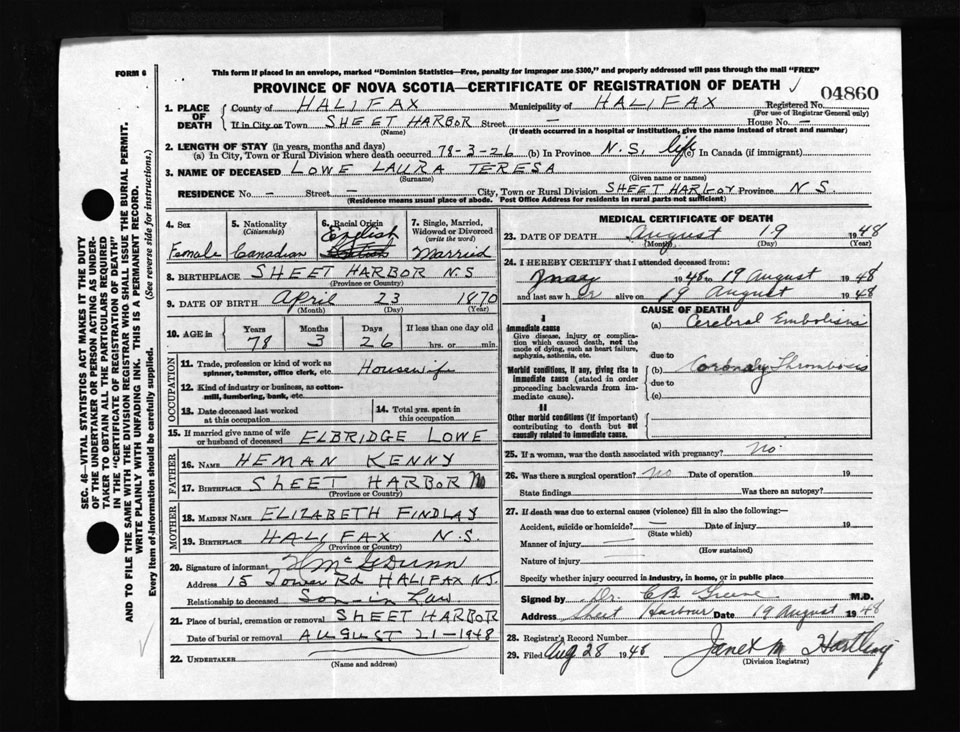 FORM 6
This form if placed in an envelope, marked "Dominion Statistics—Free, penalty for improper use $300," and properly addressed will pass through the mail "FREE"
PROVINCE OF NOVA SCOTIA—CERTIFICATE OF REGISTRATION OF DEATH
04860
1. PLACE OF DEATH
County of HALIFAX Municipality of HALIFAX Registered No.
(For use of Registrar General only)
If in City or Town SHEET HARBOR Street — House No. —
(Name) (If death occurred in a hospital or institution, give the name instead of street and number)
2. LENGTH OF STAY (in years, months and days)
(a) In City, Town or Rural Division where death occurred 78-3-26 (b) In Province N.S. life (c) In Canada (if immigrant)
3. NAME OF DECEASED LOWE LAURA TERESA
(Surname) (Given name or names)
RESIDENCE No. — Street — City, Town or Rural Division SHEET HARBOR Province N S.
(Residence means usual place of abode. Post Office Address for residents in rural parts not sufficient)
4. Sex
Female
5. Nationality (Citizenship)
Canadian
6. Racial Origin
English
7. Single, Married, Widowed or Divorced (write the word)
Married
8. BIRTHPLACE SHEET HARBOR N S
(Province or Country)
9. DATE OF BIRTH April 23 1870
(Month) (Day) (Year)
10. AGE in
Years Months Days If less than one day old
78 3 26 hrs. or min.
OCCUPATION
11. Trade, profession or kind of work as spinner, teamster, office clerk, etc. Housewife
12. Kind of industry or business, as cotton-mill, lumbering, bank, etc.
13. Date deceased last worked at this occupation
14. Total yrs. spent in this occupation
15. If married give name of wife or husband of deceased ELBRIDGE LOWE
FATHER
16. NAME HEMAN KENNY
17. BIRTHPLACE SHEET HARBOR
(Province or Country)
MOTHER
18. MAIDEN NAME ELIZABETH FINDLAY
19. BIRTHPLACE HALIFAX N.S.
(Province or Country)
20. Signature of informant
Address 15 Tower Rd HALIFAX N.S.
Relationship to deceased Son-in Law
21. Place of burial, cremation or removal SHEET HARBOR
Date of burial or removal AUGUST 21-1948
22. UNDERTAKER
(Name and address)
MEDICAL CERTIFICATE OF DEATH
23. DATE OF DEATH August 19 1948
(Month) (Day) (Year)
24. I HEREBY CERTIFY that I attended deceased from:
May 1948 to 19 August 1948
and last saw her alive on 19 August 1948
CAUSE OF DEATH
I
Immediate cause
Give disease, injury or complication which caused death, not the mode of dying, such as heart failure, asphyxia, asthenia, etc.
(a) Cerebral Embolism
due to
Morbid conditions, if any, giving rise to immediate cause (stated in order proceeding backwards from immediate cause).
(b) Coronary Thrombosis
due to
(c)
II
Other morbid conditions (if important) contributing to death but not causally related to immediate cause.
25. If a woman, was the death associated with pregnancy? no
26. Was there a surgical operation? no Date of operation 19
State findings Was there an autopsy?
27. If death was due to external causes (violence) fill in also the following:—
Accident, suicide or homicide? — Date of injury 19
(State which)
Manner of injury —
(How sustained)
Nature of injury —
Specify whether injury occurred in industry, in home, or in public place
Signed by Dr. CB Greene M.D.
Address Sheet Harbour Date 19 August 1948
28. Registrar's Record Number
29. Filed Aug 28 1948 Janet M Hartling
(Division Registrar)
SEC. 46—VITAL STATISTICS ACT MAKES IT THE DUTY
OF THE UNDERTAKER OR PERSON ACTING AS UNDER-
TAKER TO OBTAIN ALL THE PARTICULARS REQUIRED
IN THE "CERTIFICATE OF REGISTRATION OF DEATH"
AND TO FILE THE SAME WITH THE DIVISION REGISTRAR WHO SHALL ISSUE THE BURIAL PERMIT.
WRITE PLAINLY WITH UNFADING INK. THIS IS A PERMANENT RECORD.
Every item of information should be carefully supplied. (See reverse side for instructions.)